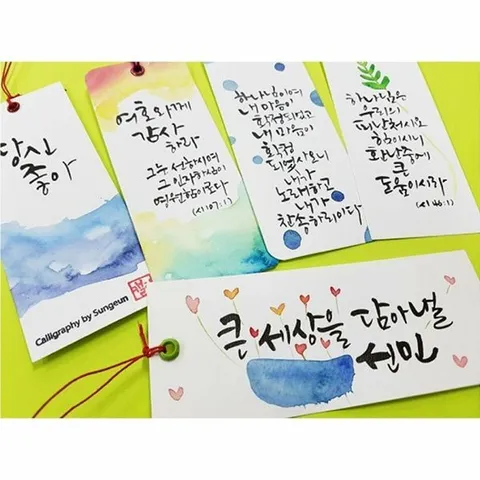 당신
좋아
Calligraphy by Sungeun
여호와께
감사
하라
그는 선하시며
그 인자하심이
영원함이로다
(시107:1)
하나님이여
내 마음이
확정되었고
내 마음이
확정
되었사오니
내가
노래하고
내가
찬송하리이다
하나님은
우리의
피난처시요
힘이시니
환난 중에
큰
도움이시라
(시46:1)
큰 세상을 담아낼